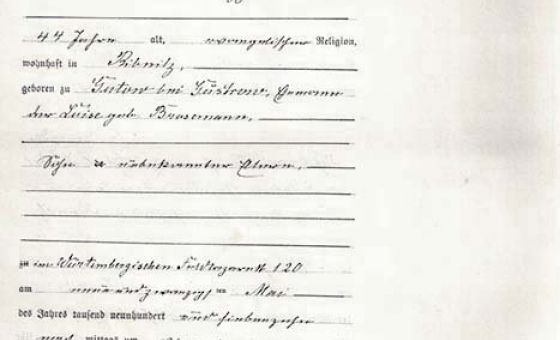 44 Jahre alt, evangelischer Religion,
wohnhaft in Ribnitz,
geboren zu Gutow bei Güstrow, Ehemann
der Luise geb. Brosemann,
Sohn unbekannter Eltern,
zu im Württembergischen Feldlazarett 120
am neunundzwanzigsten Mai
des Jahres tausend neunhundert und siebenzehn
nach mittags um